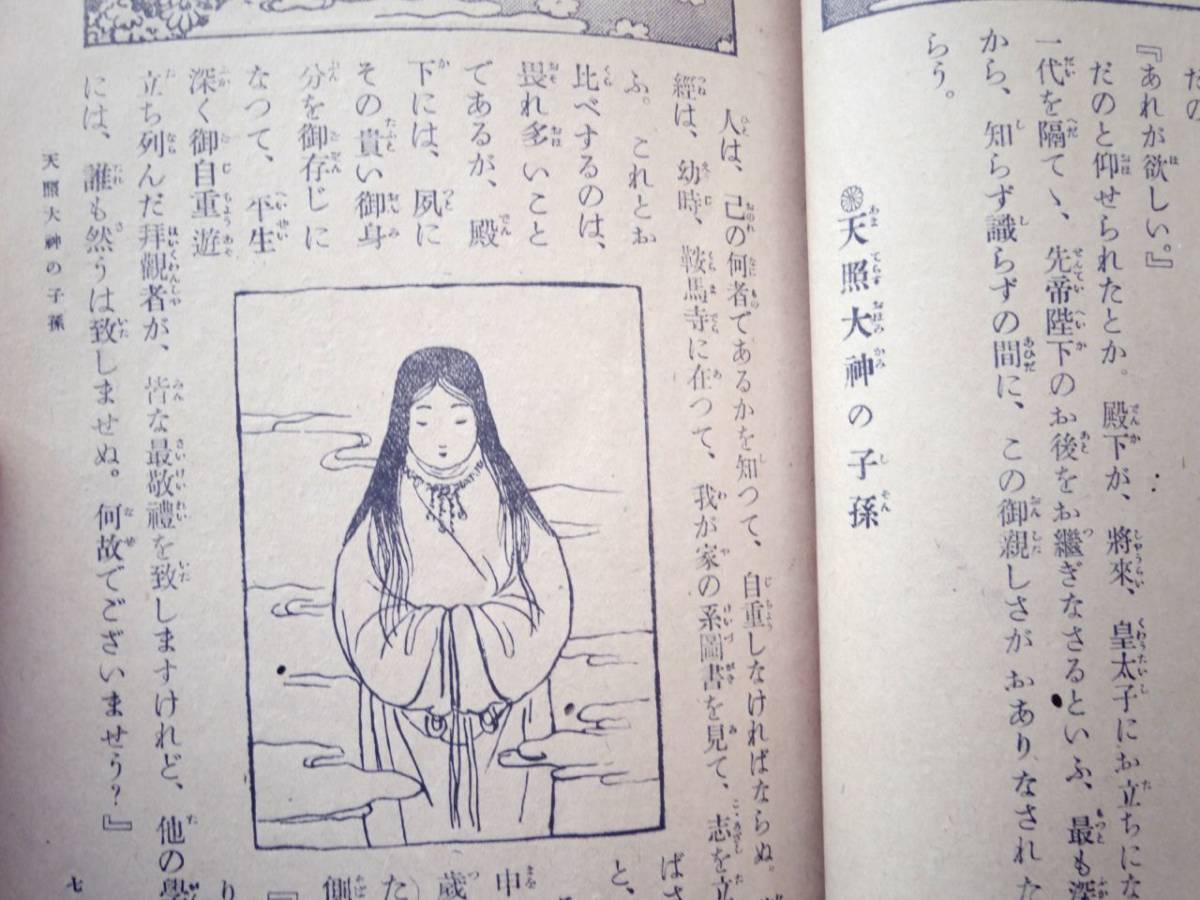 だの
『あれが欲しい。』
だのと仰せられたとか。殿下が、將來、皇太子にお立ちにな
一代を隔てゝ、先帝陛下のお後をお繼ぎなさるといふ、最も深
から、知らず識らずの間に、この御親しさがおありなされた
らう。
天照大神の子孫
人は、己の何者であるかを知つて、自重しなければならぬ。
經は、幼時、鞍馬寺に在つて、我が家の系圖書を見て、志を立
ふ。これとお
比べするのは、
畏れ多いこと
であるが、殿
下には、夙に
その貴い御身
分を御存じに
なつて、平生
深く御自重遊
ばさ
と、
申
歳
た
側
『
り
立ち列んだ拜觀者が、皆な最敬禮を致しますけれど、他の學
には、誰も然うは致しませぬ。何故でございませう?』
天照大神の子孫
七